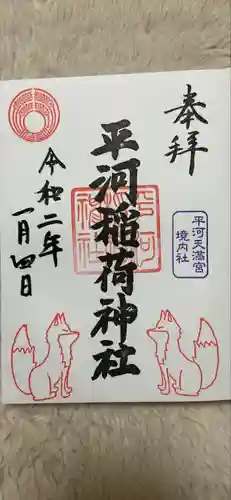 奉拝
平河天満宮
境内社
平河稲荷神社
令和二年
一月四日